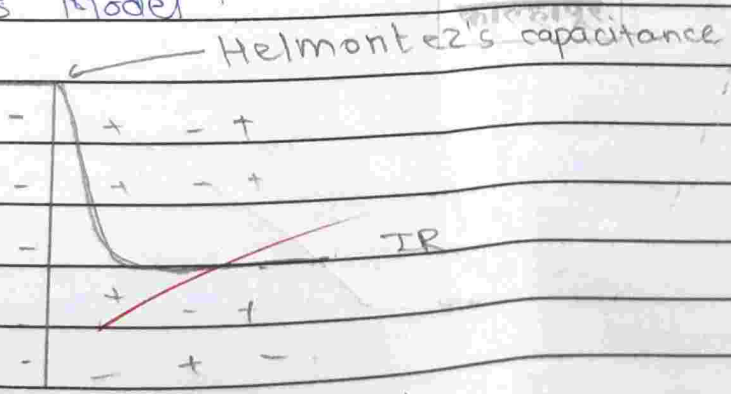 s Model
Helmontez's capacitance
- + - +
- + - +
-
IR
+ - +
- - + -